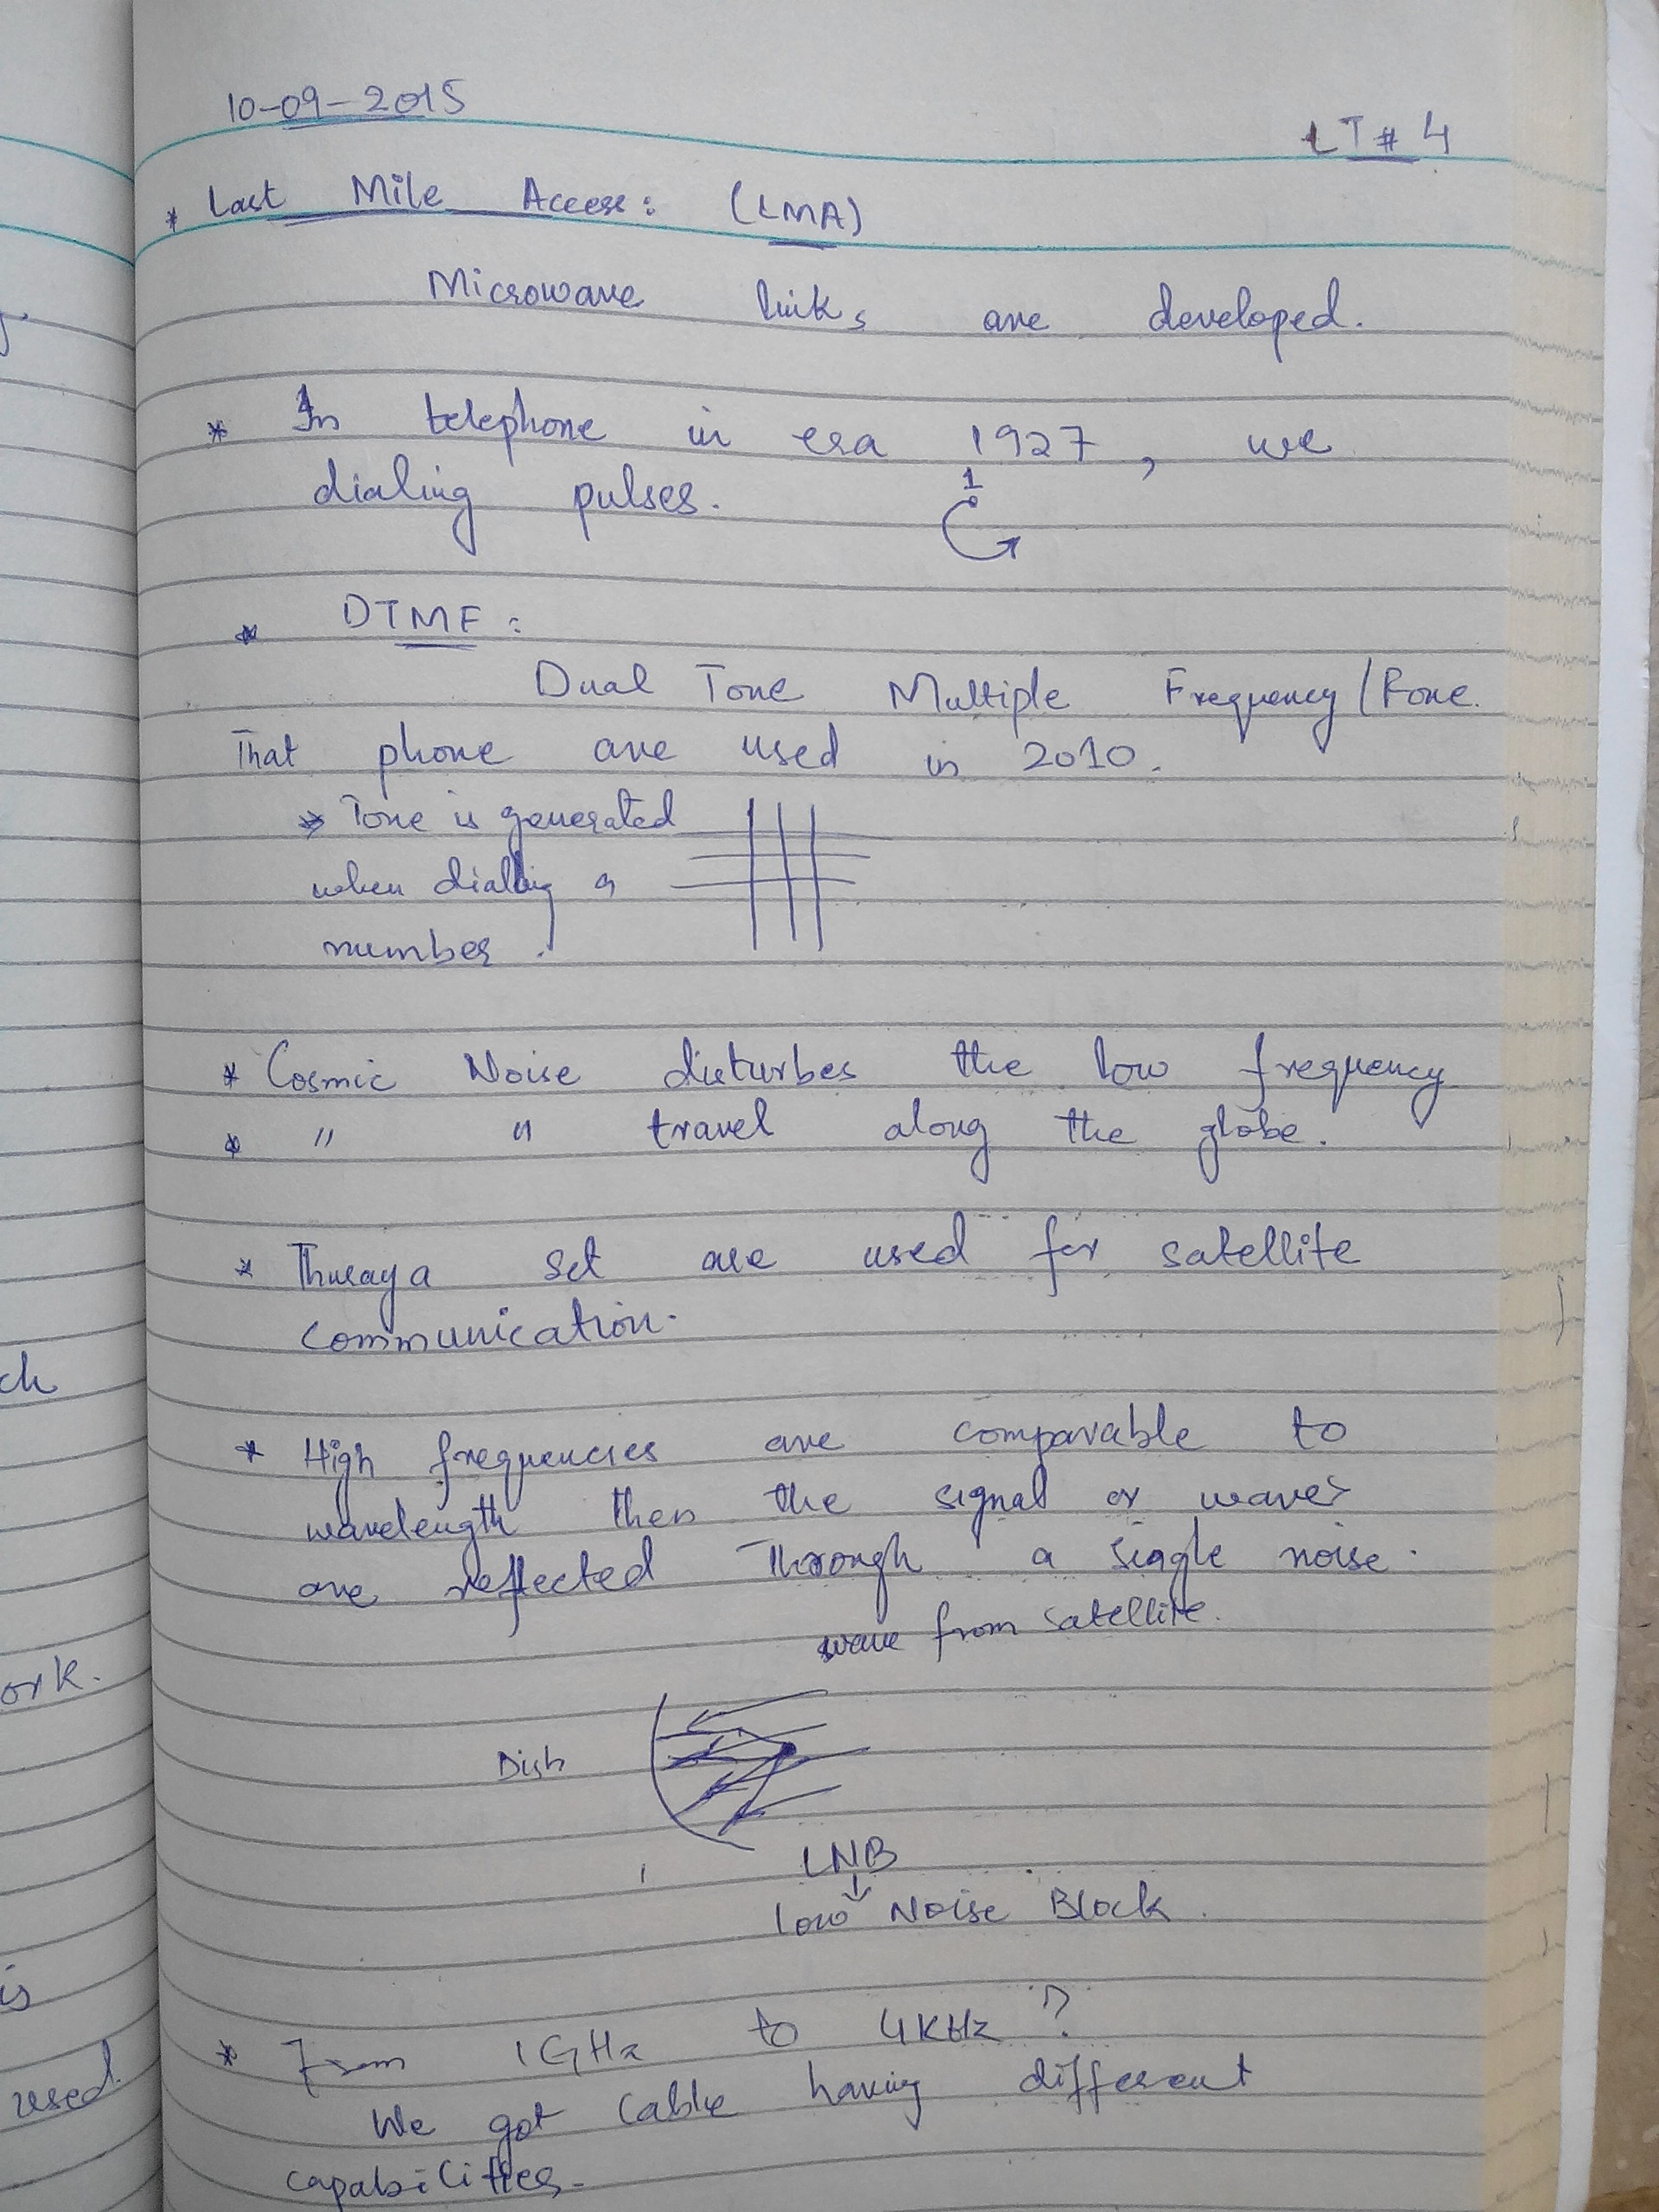 10-09-2015
LT # 4
* Last Mile Access: (LMA)
Microwave links are developed.
* In telephone in era 1927, we
dialing pulses.
1
* DTMF:
Dual Tone Multiple Frequency/Fone.
That phone are used in 2010.
* Tone is generated
when dialing a
number.
* Cosmic Noise disturbes the low frequency
* " " travel along the globe.
* Thuraya set are used for satellite
communication.
* High frequencies are comparable to
wavelength then the signal or waves
are reflected through a single noise.
wave from satellite.
Dish
LNB
Low Noise Block.
* From 1GHz to 4KHz ?
We got cable having different
capabilities.
ch
ork.
is
used.